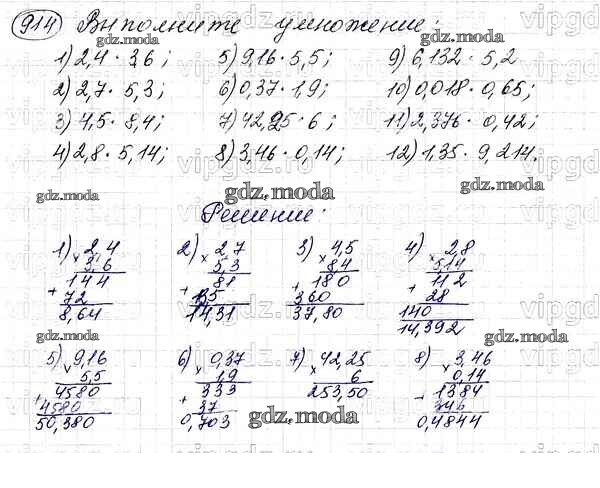 914 Выполните умножение:
1) 2,4 · 3,6; 5) 9,16 · 5,5; 9) 6,132 · 5,2
2) 2,7 · 5,3; 6) 0,37 · 1,9; 10) 0,018 · 0,65;
3) 4,5 · 8,4; 7) 42,25 · 6; 11) 2,376 · 0,42;
4) 2,8 · 5,14; 8) 3,46 · 0,14; 12) 1,35 · 9,214.
gdz.moda
Решение:
1) 2,4 2) 2,7 3) 4,5 4) 2,8
× 3,6 × 5,3 × 8,4 × 5,14
144 81 180 112
+ 72 + 135 + 360 + 28
8,64 14,31 37,80 140
14,392
5) 9,16 6) 0,37 7) 42,25 8) 3,46
× 5,5 × 1,9 × 6 × 0,14
4580 333 253,50 1384
+ 4580 + 37 + 346
50,380 0,703 0,4844
gdz.moda
vipgdz